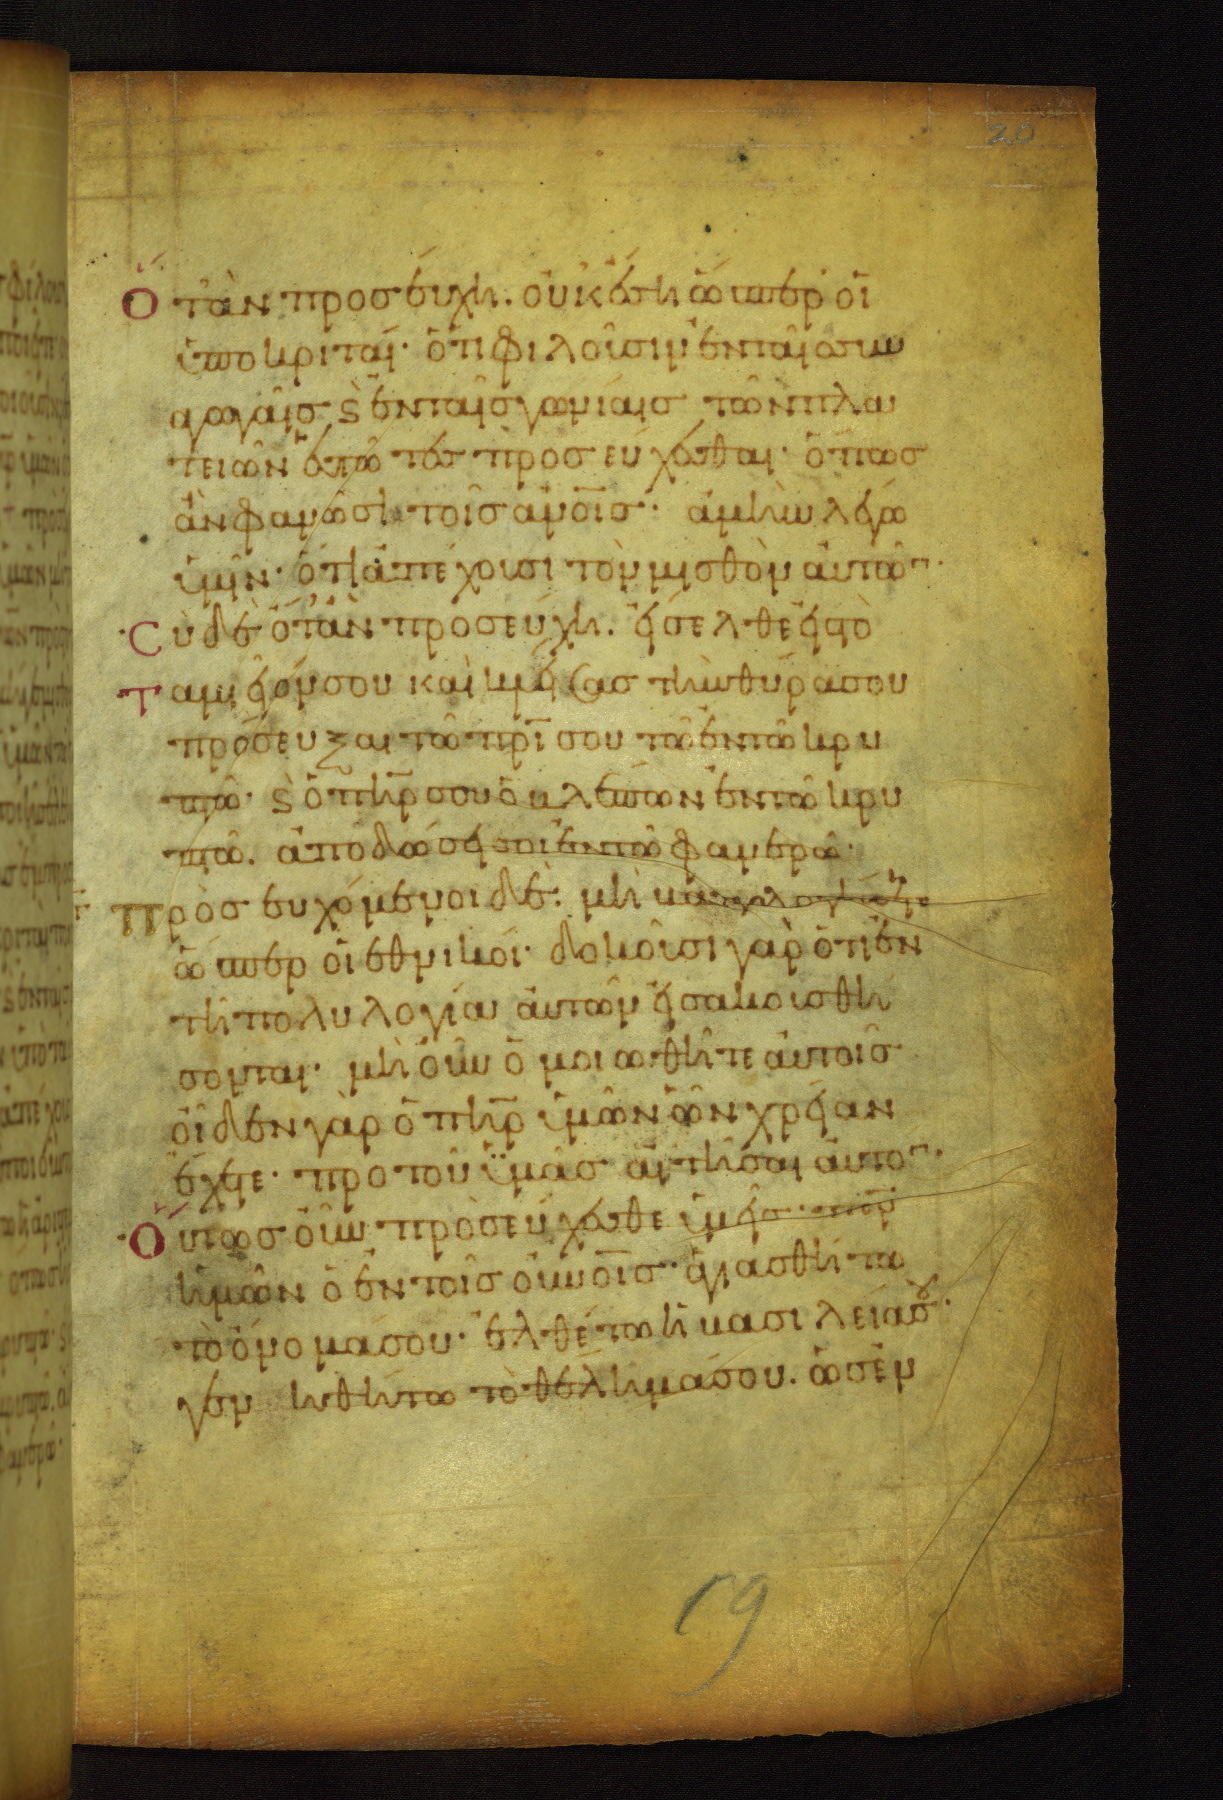 20
Ὅταν προσεύχῃ. οὐκ ἔσῃ ὥσπερ οἱ
ὑποκριταί· ὅτι φιλοῦσιν ἐν ταῖς συν
αγωγαῖς ϗ ἐν ταῖς γωνίαις τῶν πλα
τειῶν ἑστῶτες προσεύχεσθαι· ὅπως
ἂν φανῶσι τοῖς ἀνοῖς· ἀμὴν λέγω
ὑμῖν· ὅτι ἀπέχουσι τὸν μισθὸν αὐτῶν·
Σὺ δὲ ὅταν προσεύχῃ. εἴσελθε εἰς τὸ
ταμιεῖόν σου καὶ κλείσας τὴν θύρα σου
πρόσευξαι τῶ πρι σου τῶ ἐν τῶ κρυ
πτῶ· ϗ ὁ πηρ σου ὁ βλέπων ἐν τῶ κρυ
πτῶ. ἀποδώσει σοι ἐν τῶ φανερῶ·
Προσευχόμενοι δὲ· μὴ βαττολογήσητε
ὥσπερ οἱ ἐθνικοί· δοκοῦσι γὰρ ὅτι ἐν
τῆ πολυλογία αὐτῶν εἰσακουσθή
σονται· μὴ οὖν ὁμοιωθῆτε αὐτοῖς
οἶδεν γὰρ ὁ πηρ ὑμῶν ὧν χρείαν
ἔχετε· προ τοῦ ὑμᾶς αἰτῆσαι αὐτόν·
Οὕτως οὖν προσεύχεσθε ὑμεῖς· περ
ἡμῶν ὁ ἐν τοῖς οὐνοῖς· ἁγιασθήτω
τὸ ὄνομά σου· ἐλθέτω ἡ βασιλεία σου·
γεν ηθήτω τὸ θέλημά σου. ὡς ἐν
19